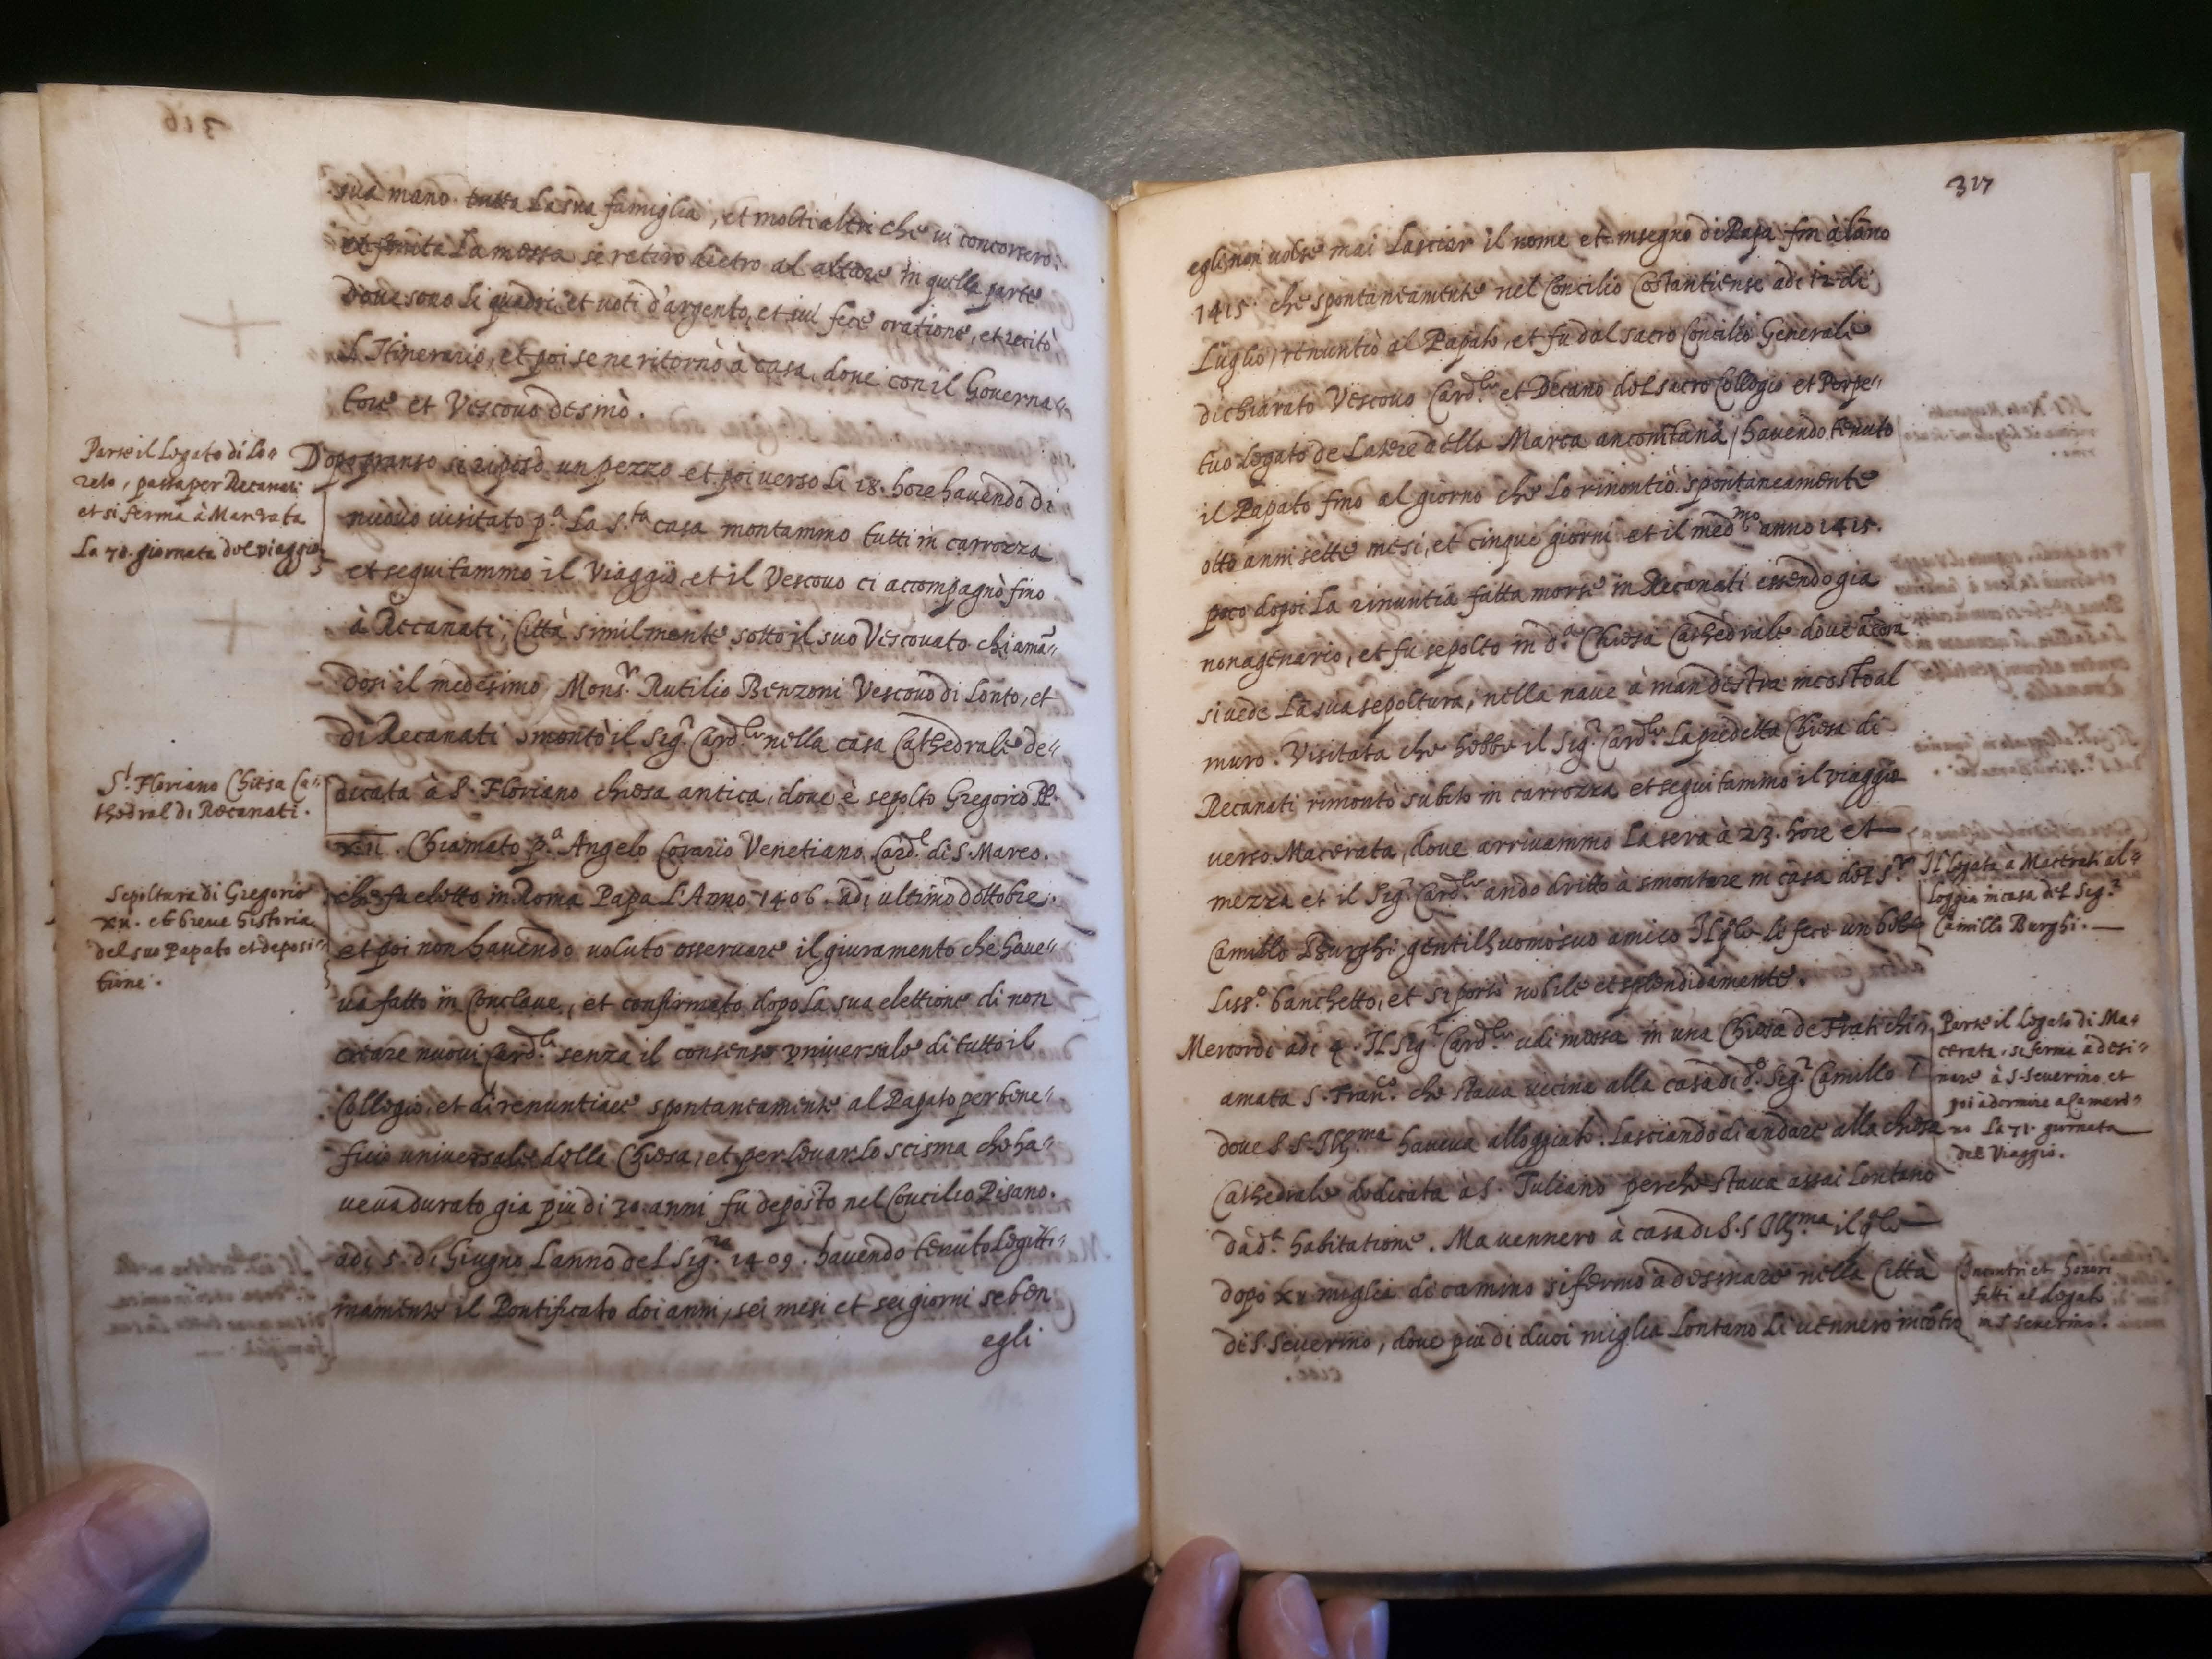 sua mano tutta la sua famiglia, et molti altri che vi concorsero:
et finita la messa se retirò dietro al altare in quella parte
dove sono li quadri et voti d'argento, et ivi fece oratione, et recitò
l'Itinerario, et poi se ne ritornò à casa, dove con il Governa=
tore et Vescovo desinò.
Parte il Legato di Lo=
reto, passa per Recanati
et si ferma à Macerata
La 70. giornata del viaggio
Dopo pranso si riposò un pezzo et poi verso li 18. hore havendo di
nuovo visitato p.a la S.ta casa montammo tutti in carrozza
et seguitammo il viaggio, et il Vescovo ci accompagnò fino
à Recanati, Città similmente sotto il suo Vescovato chiamā=
dosi il medesimo Mons.r Rutilio Benzoni Vescovo di Loreto, et
di Recanati smontò il Sig.r Card.le nella casa Cathedrale de=
St. Floriano Chiesa Ca=
thedral di Recanati.
dicata à S. Floriano chiesa antica, dove è sepolto Gregorio PP.
XII. Chiamato p.a Angelo Corario Venetiano Card.l di S. Marco.
Sepoltura di Gregorio
XII. et breve historia
del suo Papato et deposi=
tione.
che fu eletto in Roma Papa L'Anno 1406. adi ultimo d'ottobre,
et poi non havendo voluto osservare il giuramento che have=
va fatto in Conclave, et confirmato dopo la sua elettione di non
creare nuovi Card.li senza il consenso universale di tutto il
Collegio, et di renuntiare spontaneamente al Papato per bene=
ficio universale della Chiesa, et per levar lo scisma che ha=
veva durato gia piu di 30 anni fu deposto nel Concilio Pisano.
adi 5. di Giugno l'anno del Sig.re 1409. havendo tenuto legitti=
mamente il Pontificato doi anni, sei mesi et sei giorni se ben
egli
317
egli non volse mai lasciar il nome et insegno di Papa fin à l'āno
1415 che spontaneamente nel Concilio Costantiense adi 12 di
Luglio, renuntiò al Papato, et fu dal sacro Concilio Generale
dichiarato Vescovo Card.le et Decano del sacro Collegio et Perpe=
tuo legato de Latere della Marca anconitana, havendo tenuto
il Papato fino al giorno che lo rinontiò spontaneamente
otto anni sette mesi, et cinque giorni et il med.mo anno 1415.
poco dopoi la rinuntia fatta morse in Recanati essendo gia
nonagenario, et fu sepolto in d.a Chiesa Cathedrale dove ācora
si vede la sua sepoltura, nella nave à man destra incosto al
muro. Visitata che hebbe il Sig.r Card.le la predetta Chiesa di
Recanati rimontò subito in carrozza et seguitammo il viaggio
verso Macerata, dove arrivammo la sera à 23. hore et
mezza et il Sig.r Card.le andò dritto à smontare in casa del S.r
Il Legato à Macerati al=
loggia in casa del Sig.r
Camillo Burghi.
Camillo Burghi gentilhuomo suo amico Il qle li fece un bel=
liss.o banchetto, et si portò nobile et splendidamente.
Mercordi adi 4. Il Sig.r Card.le udi messa in una Chiesa de Frati chi=
Parte il Legato di Ma=
cerata, si ferma à desi=
nare à S. Severino et
poi à dormire a Cameri=
no La 71. giornata
del Viaggio.
amata S. Fran.co che stava vicina alla casa di d.o Sig.r Camillo
dove S.S. Ill.ma haveva alloggiato. Lasciando di andare alla chiesa
Cathedrale dedicata à S. Iuliano perche stava assai lontano
da d.a habitatione. Ma vennero à casa di S.S. Ill.ma il qle
dopo XV miglia di camino si fermò à desinare nella Città
Incontri et honori
fatti al Legato
in S. Severino.
di S. Severino, dove piu di duoi miglia lontano li vennero incōtro